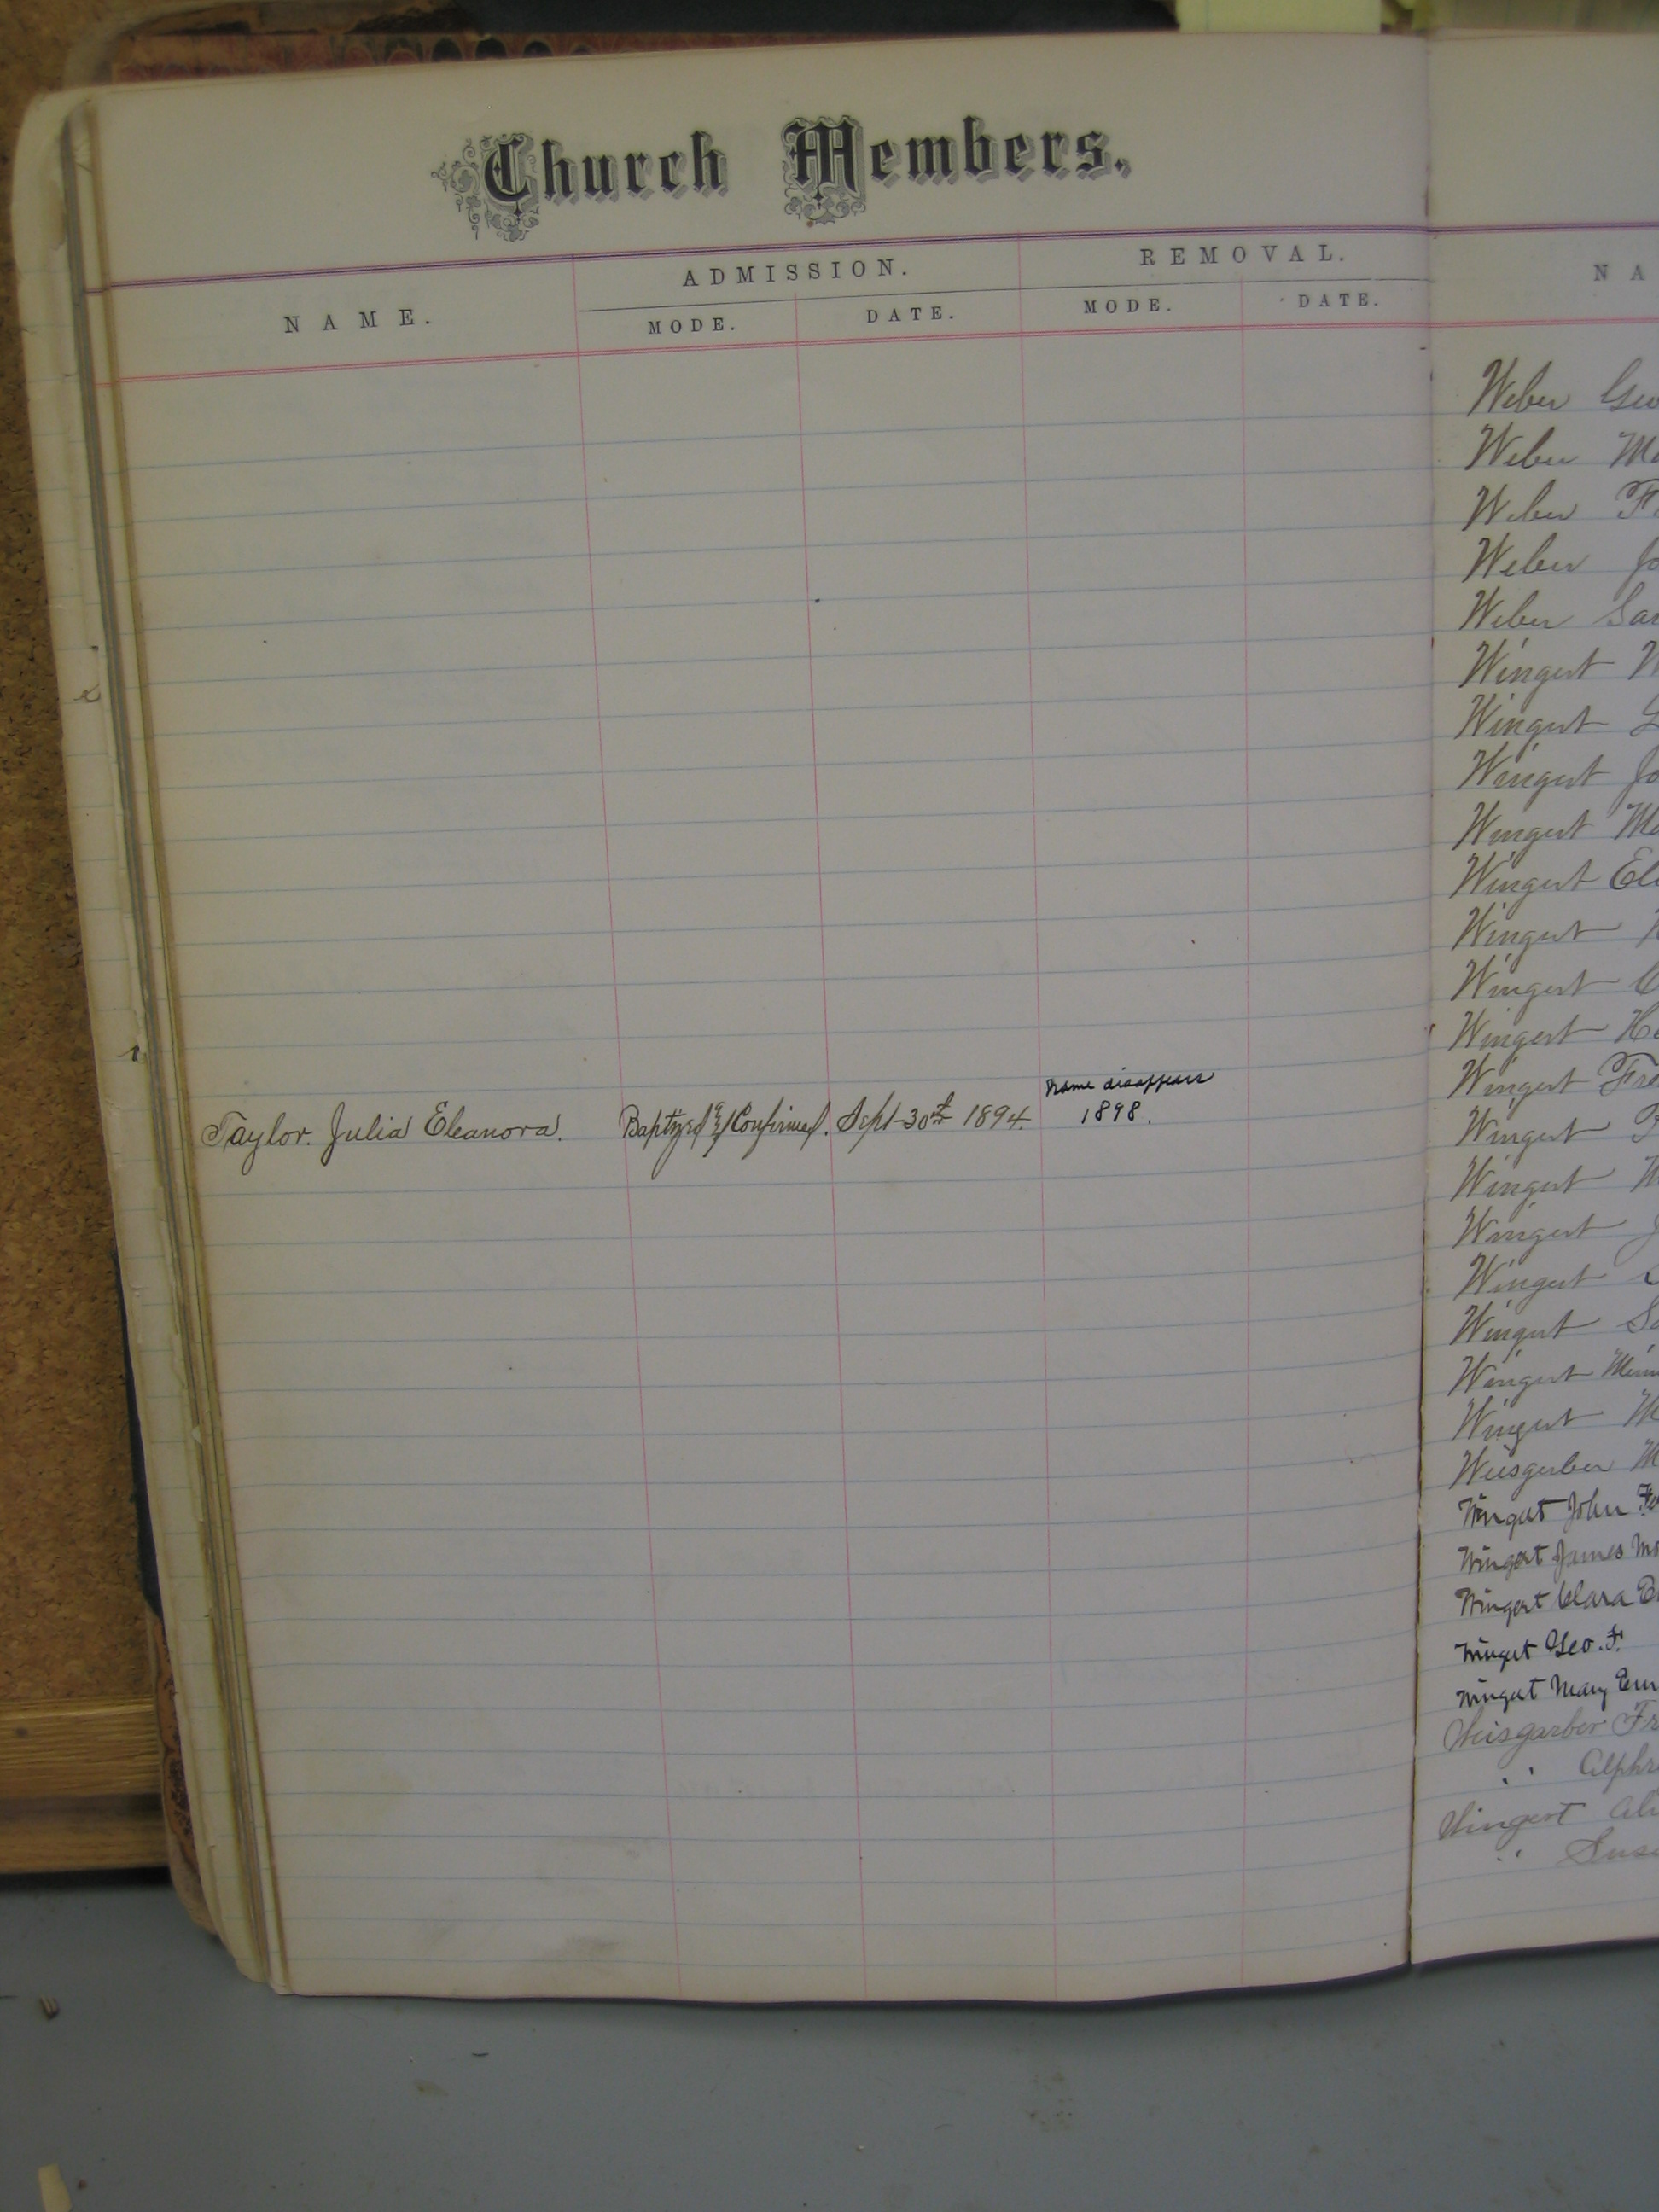 Church Members.
NAME.
ADMISSION.
MODE.
DATE.
REMOVAL.
MODE.
DATE.
Taylor. Julia Eleanora. Baptized & Confirmed. Sept 30th 1894.
Name disappears
1898.
NA
Weber Geo
Weber Ma
Weber F
Weber Jo
Weber Sar
Wingert
Wingert
Wingert Jo
Wingert Ma
Wingert Eli
Wingert
Wingert
Wingert He
Wingert Fra
Wingert
Wingert
Wingert
Wingert
Wingert Sa
Wingert Minn
Wingert
Weisgerber M
Wingert John
Wingert James Mc
Wingert Clara
Wingert Geo. F.
Wingert Mary Em
Weisgarber Fr
" Alphr
Wingert Al
" Sus